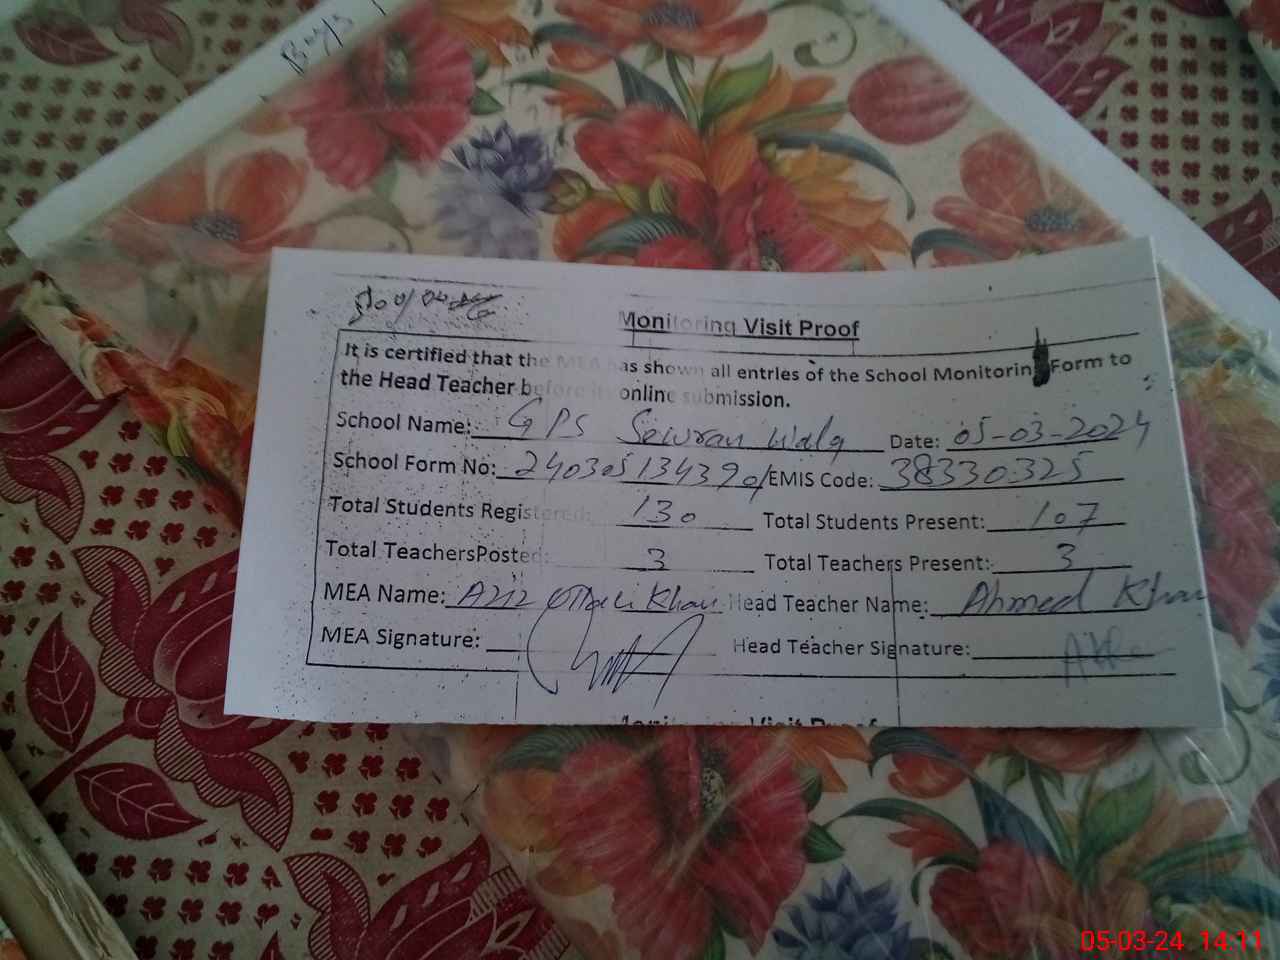 Boys
Monitoring Visit Proof
It is certified that the MEA has shown all entries of the School Monitoring Form to
the Head Teacher before its online submission.
School Name: GPS Sewran Wala Date: 05-03-2024
School Form No: EMIS Code: 38330325
Total Students Registered: 130 Total Students Present: 107
Total TeachersPosted: 3 Total Teachers Present: 3
MEA Name: Aziz Khan Head Teacher Name: Ahmed Khan
MEA Signature: Head Teacher Signature:
Monitoring Visit Proof
05-03-24 14:11